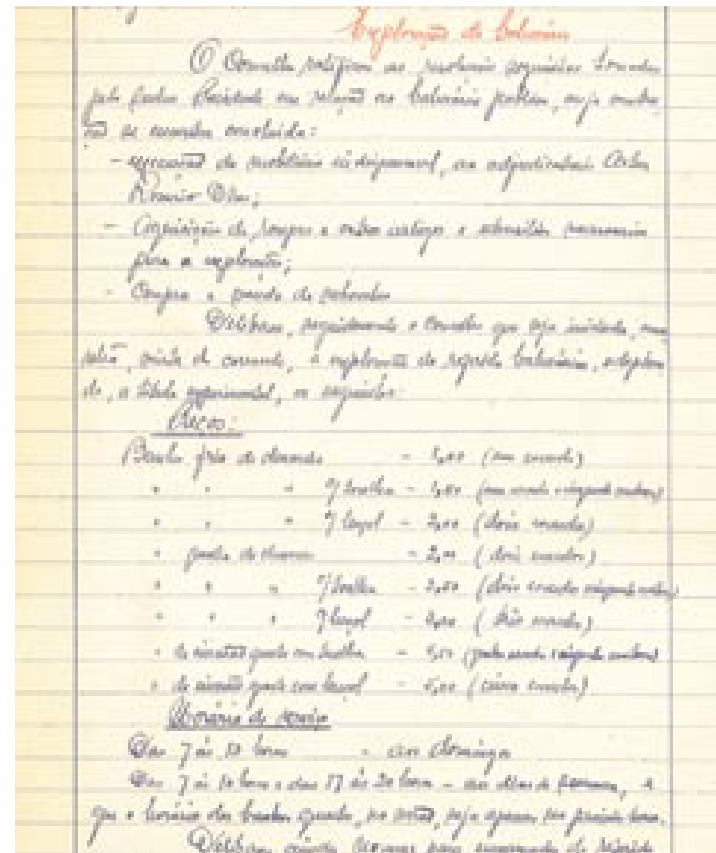 Exploração do balneário
O Conselho ratificou as resoluções seguintes tomadas
pelo Senhor Presidente em relação ao balneário público, cuja constru-
ção se encontra concluída:
- execução do mobiliário indispensável, ao adjudicatário
Rosário Dias;
- Aquisição de roupas e outros artigos e utensílios necessários
para a exploração;
- Compra e venda de sabonetes
Deliberou, seguidamente o Conselho que seja iniciada,
vinte do corrente, a exploração do referido balneário, adoptan-
do, a título experimental, os seguintes:
Preços:
Banho frio de chuveiro - 1,00 (um escudo)
" " " c/ toalha - 1,50 (um escudo e cinquenta centavos)
" " " c/ lençol - 2,00 (dois escudos)
" quente de chuveiro - 2,00 (dois escudos)
" " " c/ toalha - 2,50 (dois escudos e cinquenta centavos)
" " " c/ lençol - 3,00 (três escudos)
" de imersão quente com toalha - 4,50 (quatro escudos e cinquenta centavos)
" de imersão quente com lençol - 5,00 (cinco escudos)
Horário de serviço
Das 7 às horas - aos domingos
Das 7 às 10 horas e das 17 às 20 horas - aos dias de semana, e
que o horário dos banhos quentes, no verão, seja apenas
Deliberou ainda para encarregado do referido